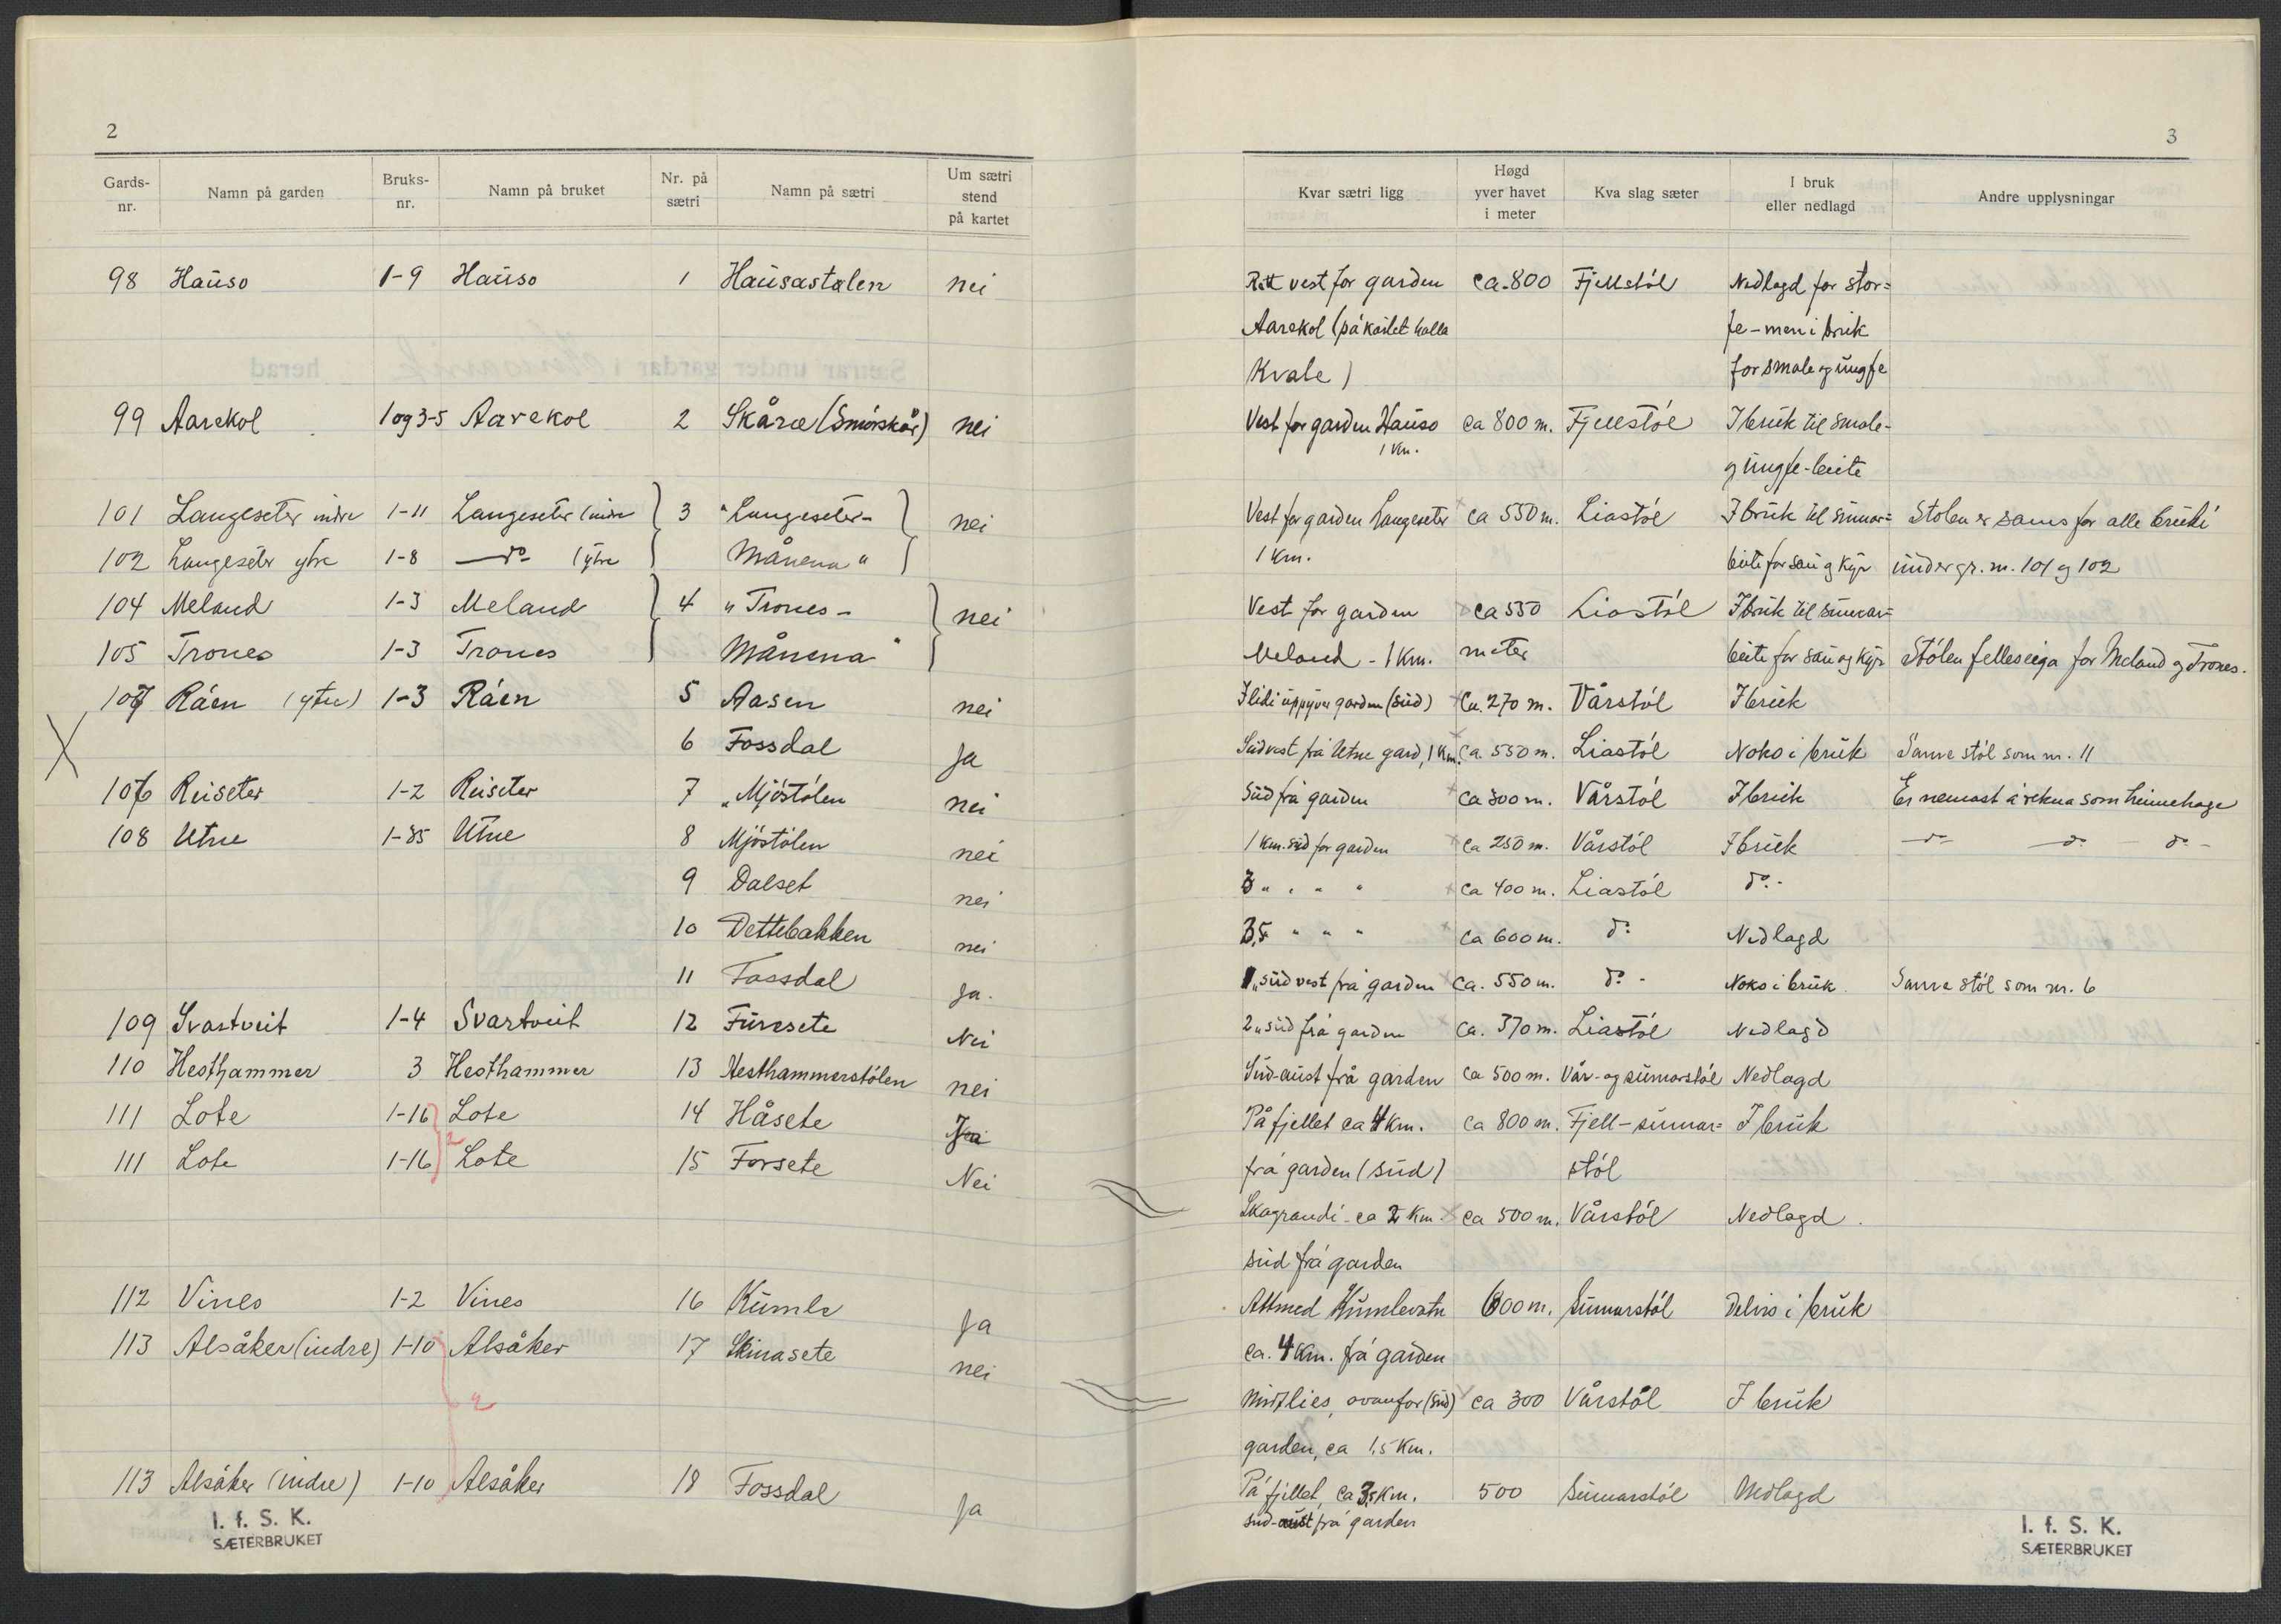 2
Gards-nr. Namn på garden Bruks-nr. Namn på bruket Nr. på sætri Namn på sætri Um sætri stend på kartet
98 Hauso 1-9 Hauso 1 Hausastølen nei
99 Aarekol 1 og 3-5 Aarekol 2 Skåræ (Smörskår) nei
101 Langeseter indre 1-11 Langeseter (indre 3 "Langeseter- nei
102 Langeseter ytre 1-8 —do- (ytre Månena"
104 Meland 1-3 Meland 4 "Trones- nei
105 Trones 1-3 Trones Månena"
107 Råen (ytre) 1-3 Råen 5 Aasen nei
6 Fossdal Ja
106 Reiseter 1-2 Reiseter 7 "Mjöstölen nei
108 Utne 1-35 Utne 8 Mjöstölen nei
9 Dalset nei
10 Dettebakken nei
11 Fossdal Ja.
109 Svartveit 1-4 Svartveit 12 Furesete Nei
110 Hesthammer 3 Hesthammer 13 Hesthammerstölen nei
111 Lote 1-16 Lote 14 Håsete Ja
2
111 Lote 1-16 Lote 15 Forsete Nei
112 Vines 1-2 Vines 16 Kumle Ja
113 Alsåker (indre) 1-10 Alsåker 17 Skinasete nei
2
113 Alsåker (indre) 1-10 Alsåker 18 Fossdal Ja
I. f. S. K.
SÆTERBRUKET
3
Kvar sætri ligg Høgd yver havet i meter Kva slag sæter I bruk eller nedlagd Andre upplysningar
Rett vest for garden ca. 800 Fjellstöl Nedlagd for stor=
Aarekol (på kartet kalla fe - men i bruk
Kvale) for smale og ungfe
Vest for garden Hauso ca 800 m. Fjellstöl I bruk til smale-
1 km. og ungfe-beite
Vest for garden Langeseter ca 550 m. Liastöl I bruk til sumar= Stölen er sams for alle bruki
1 km. beite for sau og kyr under gr. nr. 101 og 102
Vest for garden ca 550 Liastöl I bruk til sumar=
Meland - 1 km. meter beite for sau og kyr Stölen felleseiga for Meland og Trones.
I lidi uppyver garden (sud) Ca. 270 m. Vårstöl I bruk
Sudvest frå Utne gard, 1 km. ca. 550 m. Liastöl Noko i bruk Same stöl som nr. 11
Sud frå garden ca 300 m. Vårstöl I bruk Er nemast å rekna som heimehage
1 km. sud for garden ca 250 m. Vårstöl I bruk —do- —do- do-
3 " " " " ca 400 m. Liastöl do.-
3,5 " " " ca 600 m. do Nedlagd
1 " sudvest frå garden ca. 550 m. do - Noko i bruk Same stöl som nr. 6
2 " sud frå garden ca. 370 m. Liastöl Nedlagd
Sud-aust frå garden ca 500 m. Vår- og sumarstöl Nedlagd
På fjellet ca 4 km. ca 800 m. Fjell-sumar= I bruk
frå garden (sud) stöl
Skograndi - ca 2 km ca 500 m. Vårstöl Nedlagd.
sud frå garden
Attmed Kumlevatn 600 m. Sumarstöl Delvis i bruk
ca. 4 km. frå garden
Midtlies, ovanfor (sud) ca 300 Vårstöl I bruk
garden, ca 1,5 km.
På fjellet, ca 3,5 km. 500 Sumarstöl Nedlagd
sud-aust frå garden
I. f. S. K.
SÆTERBRUKET